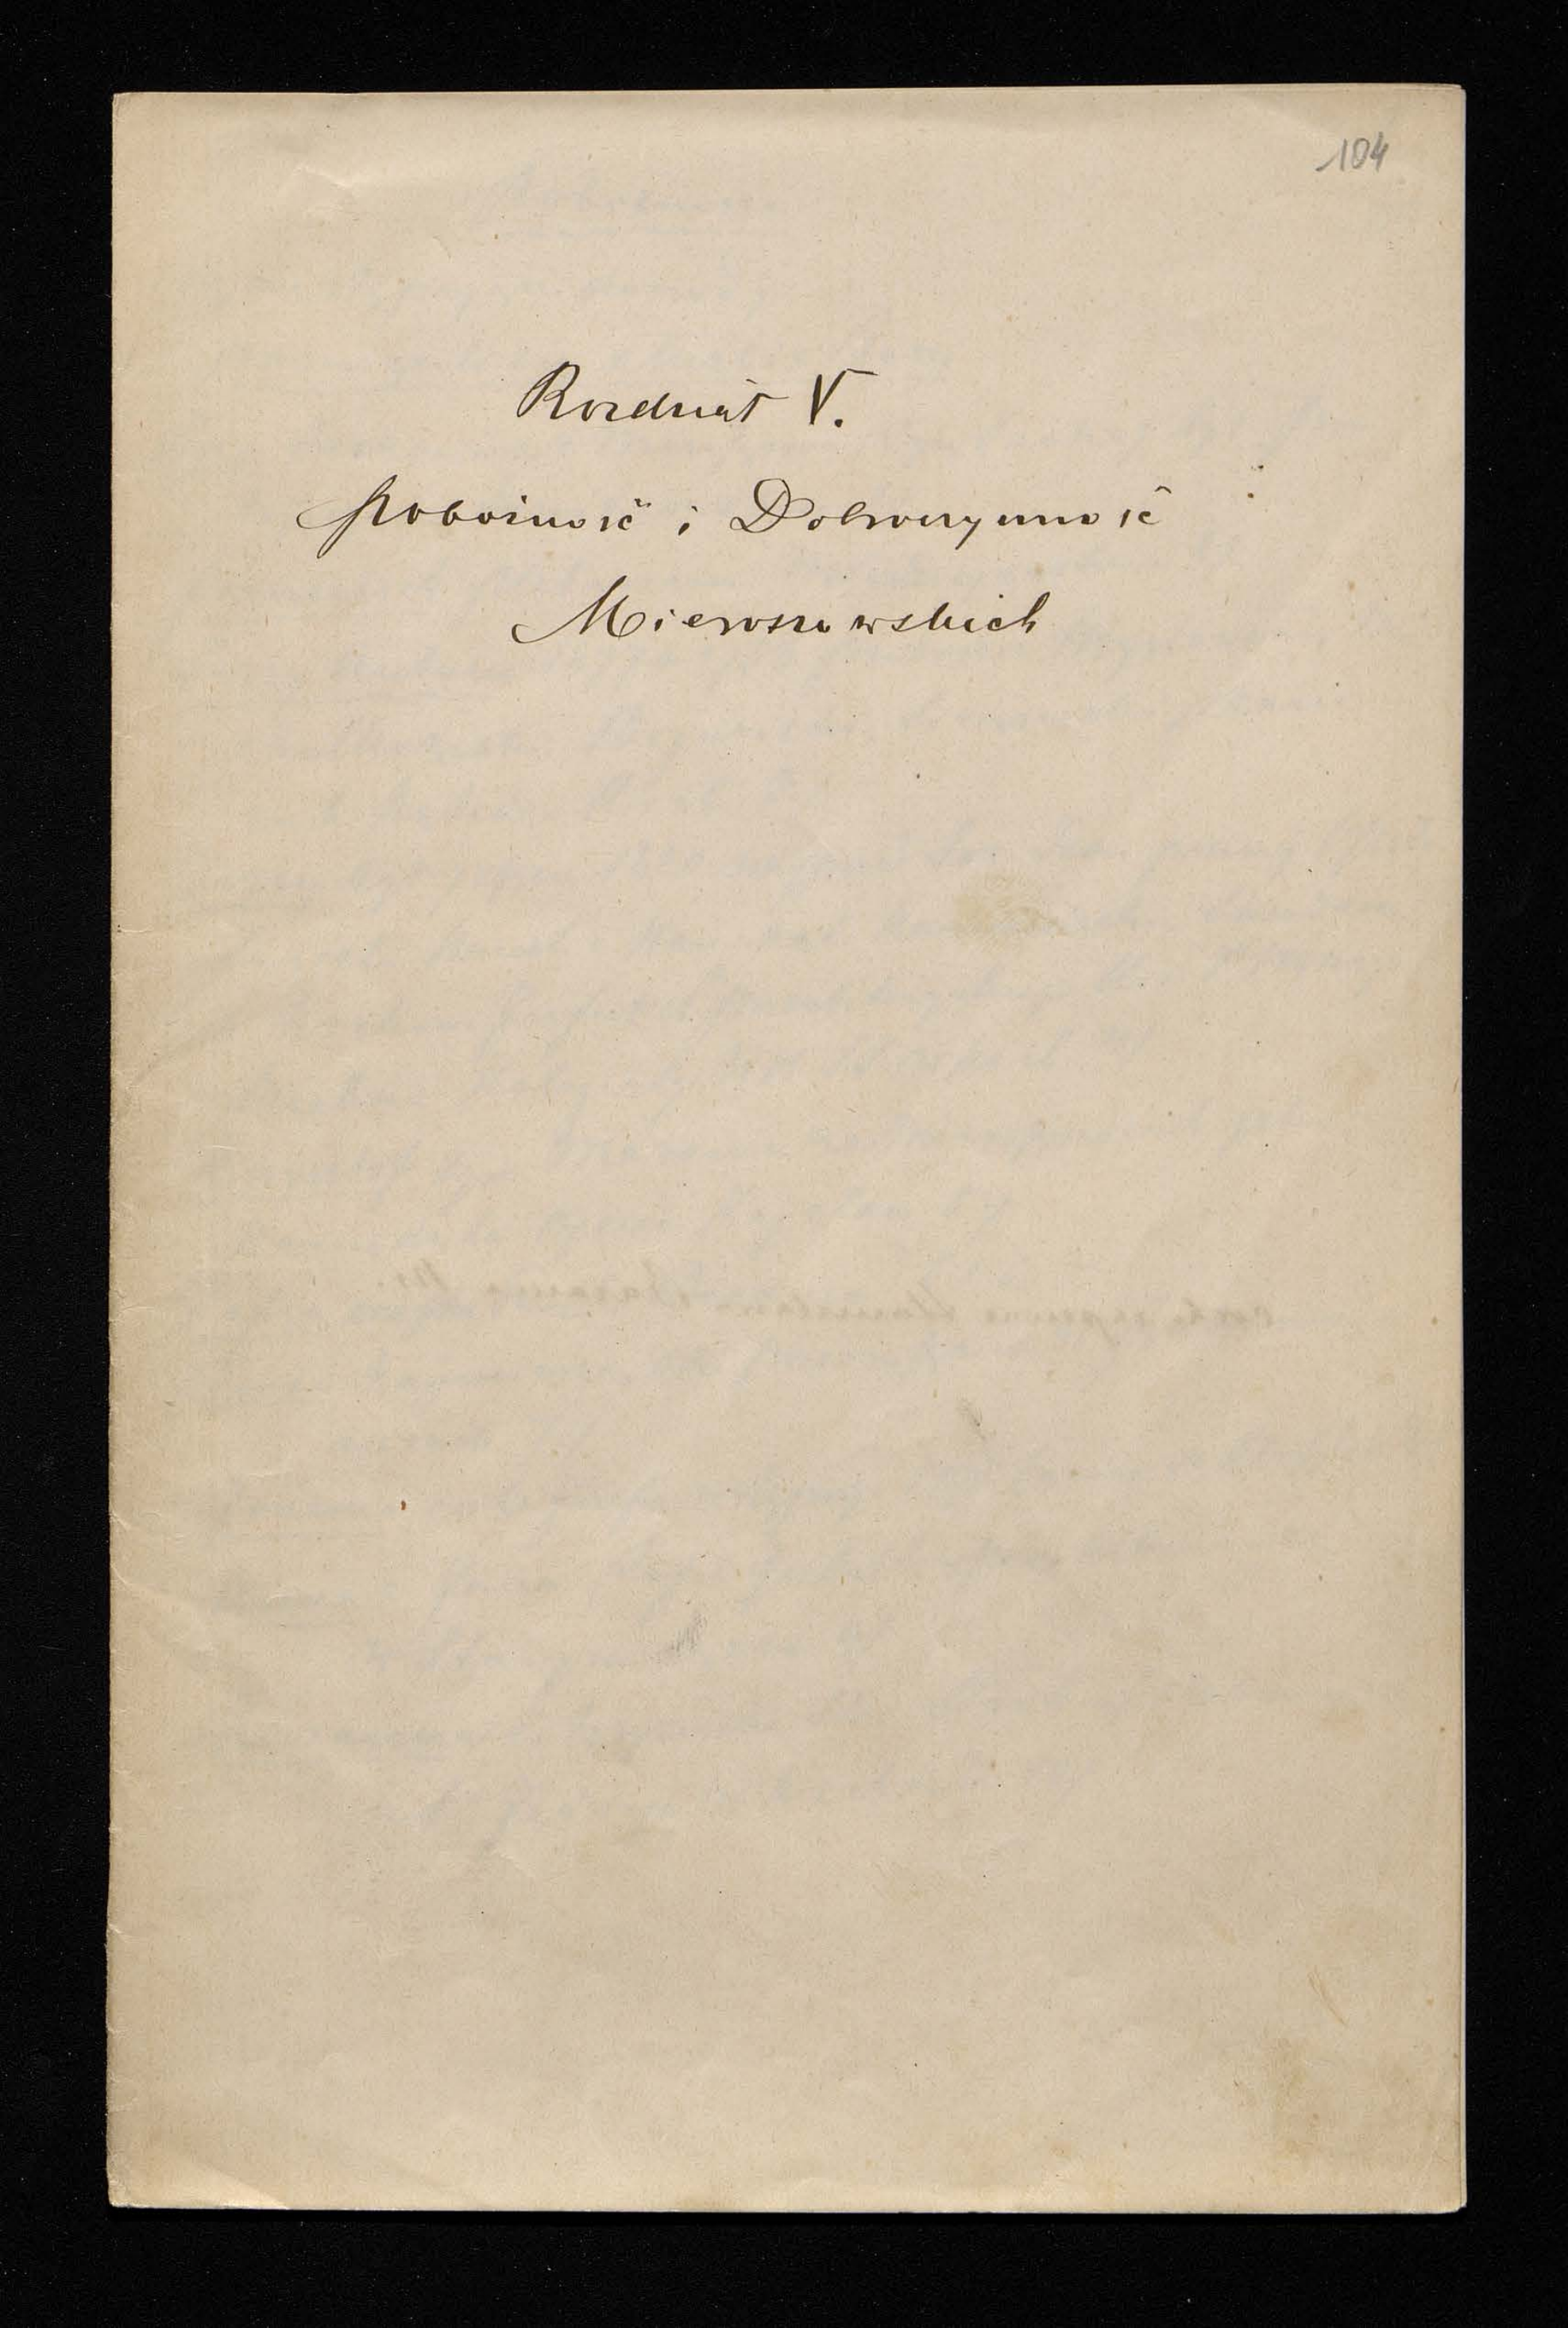 104
Rozdział V.
Pobożność i Dobroczynność
Mieroszowskich